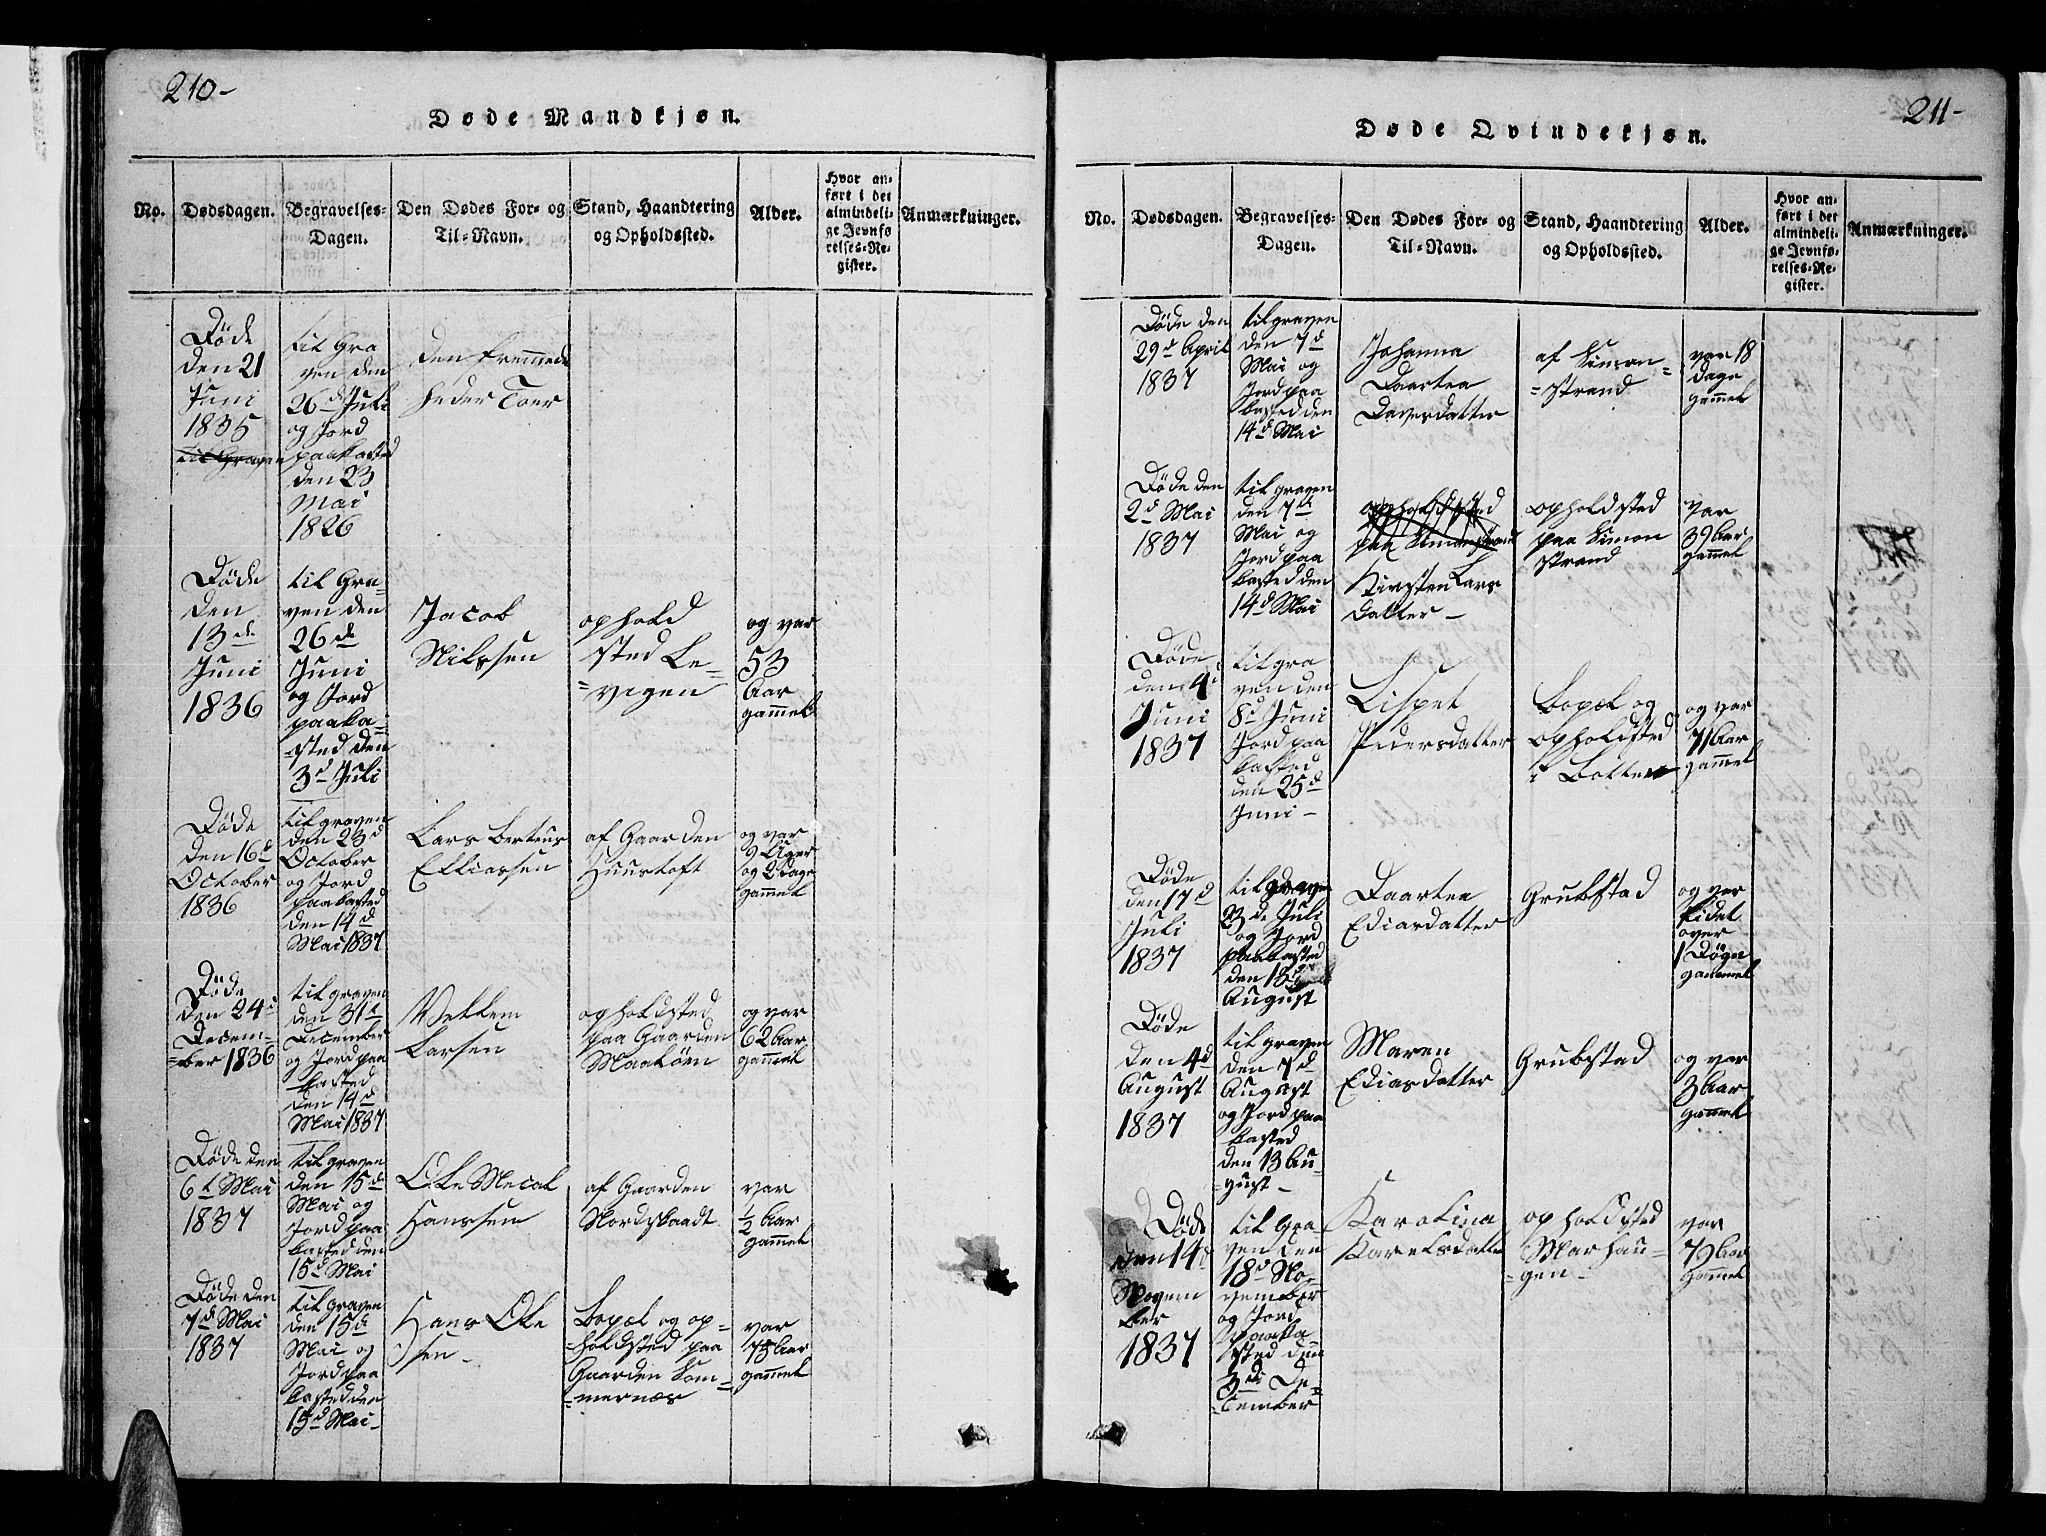 210-
Døde Mandkjøn.
No.
Dødsdagen.
Begravelses-
Dagen.
Den Dødes For- og
Til-Navn.
Stand, Haandtering
og Opholdssted.
Alder.
Hvor an-
ført i det
almindeli-
ge Jevnfø-
relses-Re-
gister.
Anmærkninger.
Døde
den 21
Juni
1835
til Graven
til Gra
ven den
26d Juli
og Jord
paakasted
den 23
Mai
1826
den fremede
Peder Toer
Døde
den
13de
Juni
1836
til Gra-
ven den
26de
Juni
og Jord
paaka-
-sted den
3d Juli
Jacob
Nilssen
ophold
sted Le-
=vigen
og var
53
Aar
gammel
Døde
den 16d
October
1836
til graven
den 23d
October
og Jord
paakasted
den 14d
Mai 1837
Lars Berteus
Elliassen
af Gaarden
Huustoft
og var
9 Uger
og 2 Dage
gammel
Døde
den 24d
Decem-
=ber 1836
til graven
den 31t
December
og Jord paa
kasted
den 14d
Mai 1837
Vellem
Larsen
opholdsted
paa Gaarden
Maaløen
og var
62 Aar
gammel
Døde den
6t Mai
1837
til graven
den 15d
Mai og
Jord paa
kasted den
15d Mai
Ole Mecal
Hanssen
af Gaarden
Nordskaadt
var
1/2 Aar
gammel
Døde den
7d Mai
1837
til graven
den 15d
Mai og
Jord paa
kasted den
15d Mai-
Hans Ole
Sen-
Bopæl og op-
=holdsted paa
Gaarden Kom-
=mernæs
var
75 Aar
gammel
211-
Døde Qvindekjøn.
No.
Dødsdagen.
Begravelses-
Dagen.
Den Dødes For- og
Til-Navn.
Stand, Haandtering
og Opholdssted.
Alder.
Hvor an-
ført i det
almindeli-
ge Jevnfø-
relses-Re-
gister.
Anmærkninger.
Døde den
29d April
1837
til graven
den 7d
Mai og
Jord paa
kasted den
14d Mai
Johanna
Daartea
Daversdatter
af Simon-
=strand
var 18
dage
gammel
Døde den
2d Mai
1837
til graven
den 7d
Mai og
Jord paa
kasted den
14d Mai
opholdsted
paa Simonstrand
Kirsten Lars
Datter-
opholdsted
paa Simon
strand
var
39 Aar
gammel
Døde
den 4d
Juni
1837
til gra
ven den
8d Juni
Jord paa
kasted
den 25d
Juni-
Lispet
Pedersdatter
Bopæl og
opholdsted
i Botten
og var
71 Aar
gammel
Døde
den 17d
Juli
1837
til graven
23de Juli
og Jord
paakasted
den 13d
August
Daartea
Ediasdatter
Grubstad
og var
lidet
over
1 Døgn
gammel
Døde
den 4d
August
1837
til graven
den 7d
August
og Jord paa
kasted
den 13 Au-
=gust-
Maren
Ediasdatter
Grubstad
og var
3 Aar
gammel
Døde
den 14d
Novem
ber
1837
til Gra-
ven den
18d No-
vember
og Jord
paaka-
sted den
3di De-
=cember
Karolina
Karelsdatter
opholdsted
Marhau-
=gen-
var
79 Aar
gammel